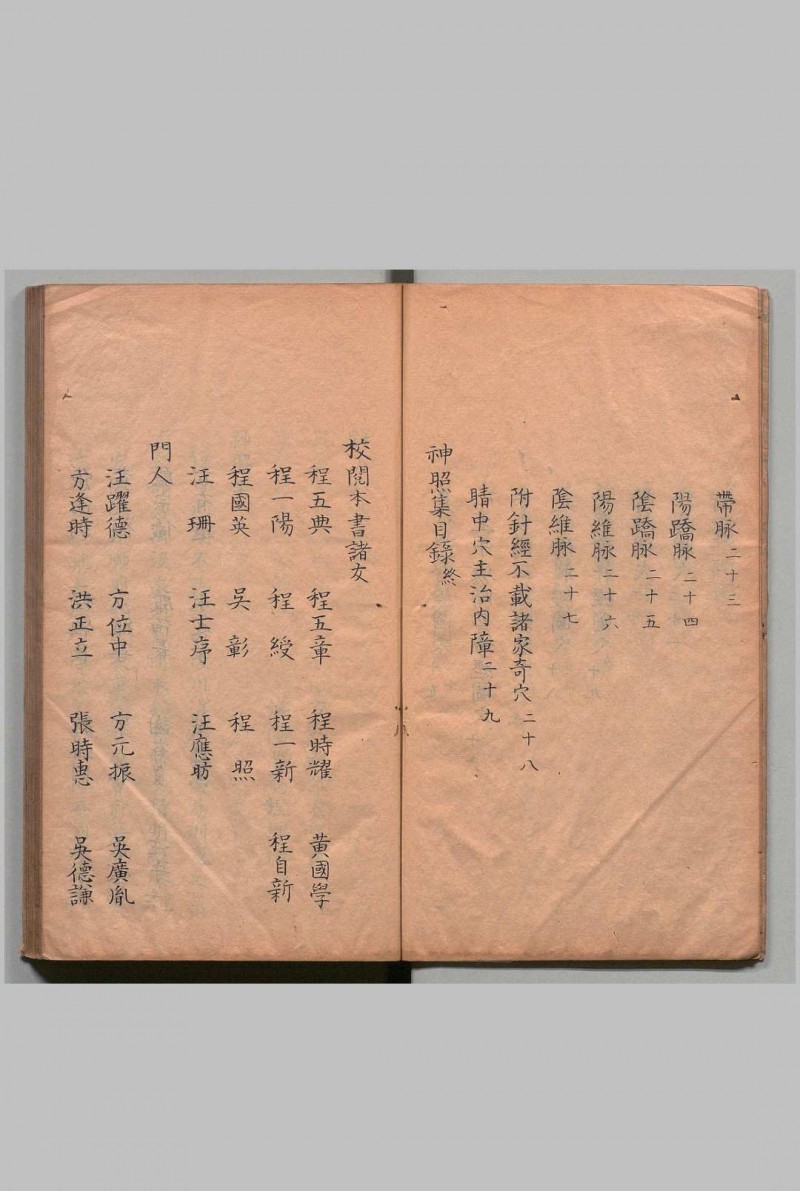 帶脉二十三
陽蹻脉二十四
陰蹻脉二十五
陽維脉二十六
陰維脉二十七
附針經不載諸家奇穴二十八
睛中穴主治内障二十九
神照集目錄終
校閱本書諸友
程五典 程五章 程時耀 黃國學
程一陽 程綬 程一新 程自新
程國英 吳彰 程照
汪珊 汪士序 汪應昉
門人
汪躍德 方位中 方元振 吳廣胤
方逢時 洪正立 張時惠 吳德謙